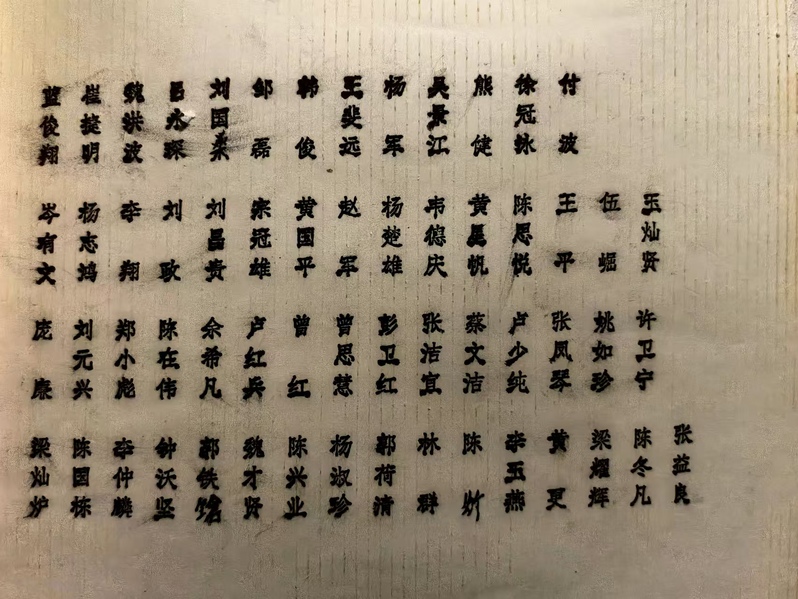 蓝俊翔
崔捷明
魏洪波
吕永琛
刘国柔
邹磊
韩俊
王斐远
杨军
吴景江
熊健
徐冠咏
付波
岑有文
杨志鸿
李翔
刘
刘昌贵
宗冠雄
黄国平
赵军
杨楚雄
韦德庆
黄昱帆
陈思悦
王平
伍崛
玉灿贤
庞康
刘元兴
郑小彪
陈在伟
佘希凡
卢红兵
曾红
曾思慧
彭卫红
张洁宜
蔡文洁
卢少纯
张凤琴
姚如珍
许卫宁
梁灿炉
陈国栋
李仲麟
钟沃坚
郭铁
魏才贤
陈兴业
杨淑珍
郭荷清
林群
陈
李玉燕
黄更
梁耀辉
陈冬凡
张益良